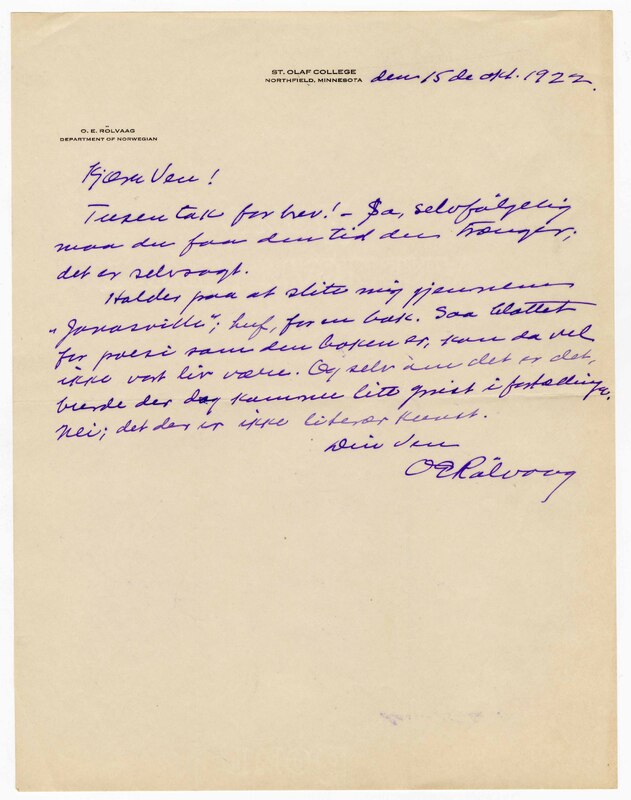 ST. OLAF COLLEGE
NORTHFIELD, MINNESOTA
den 15de okt. 1922.
O. E. RÖLVAAG
DEPARTMENT OF NORWEGIAN
Kjære Ven!
Tusen tak for brev! – Ja, selvfölgelig
maa du faa den tid du trænger;
det er selvsagt.
Holder paa at slite mig gjennem
"Jonasville"; huf, for en bok. Saa blottet
for poesi som den boken er, kan da vel
ikke vort liv være. Og selv om det er det,
burde der dog komme litt i fortællinge.
Nei; det der er ikke literær kunst.
Din Ven
OE Rölvaag